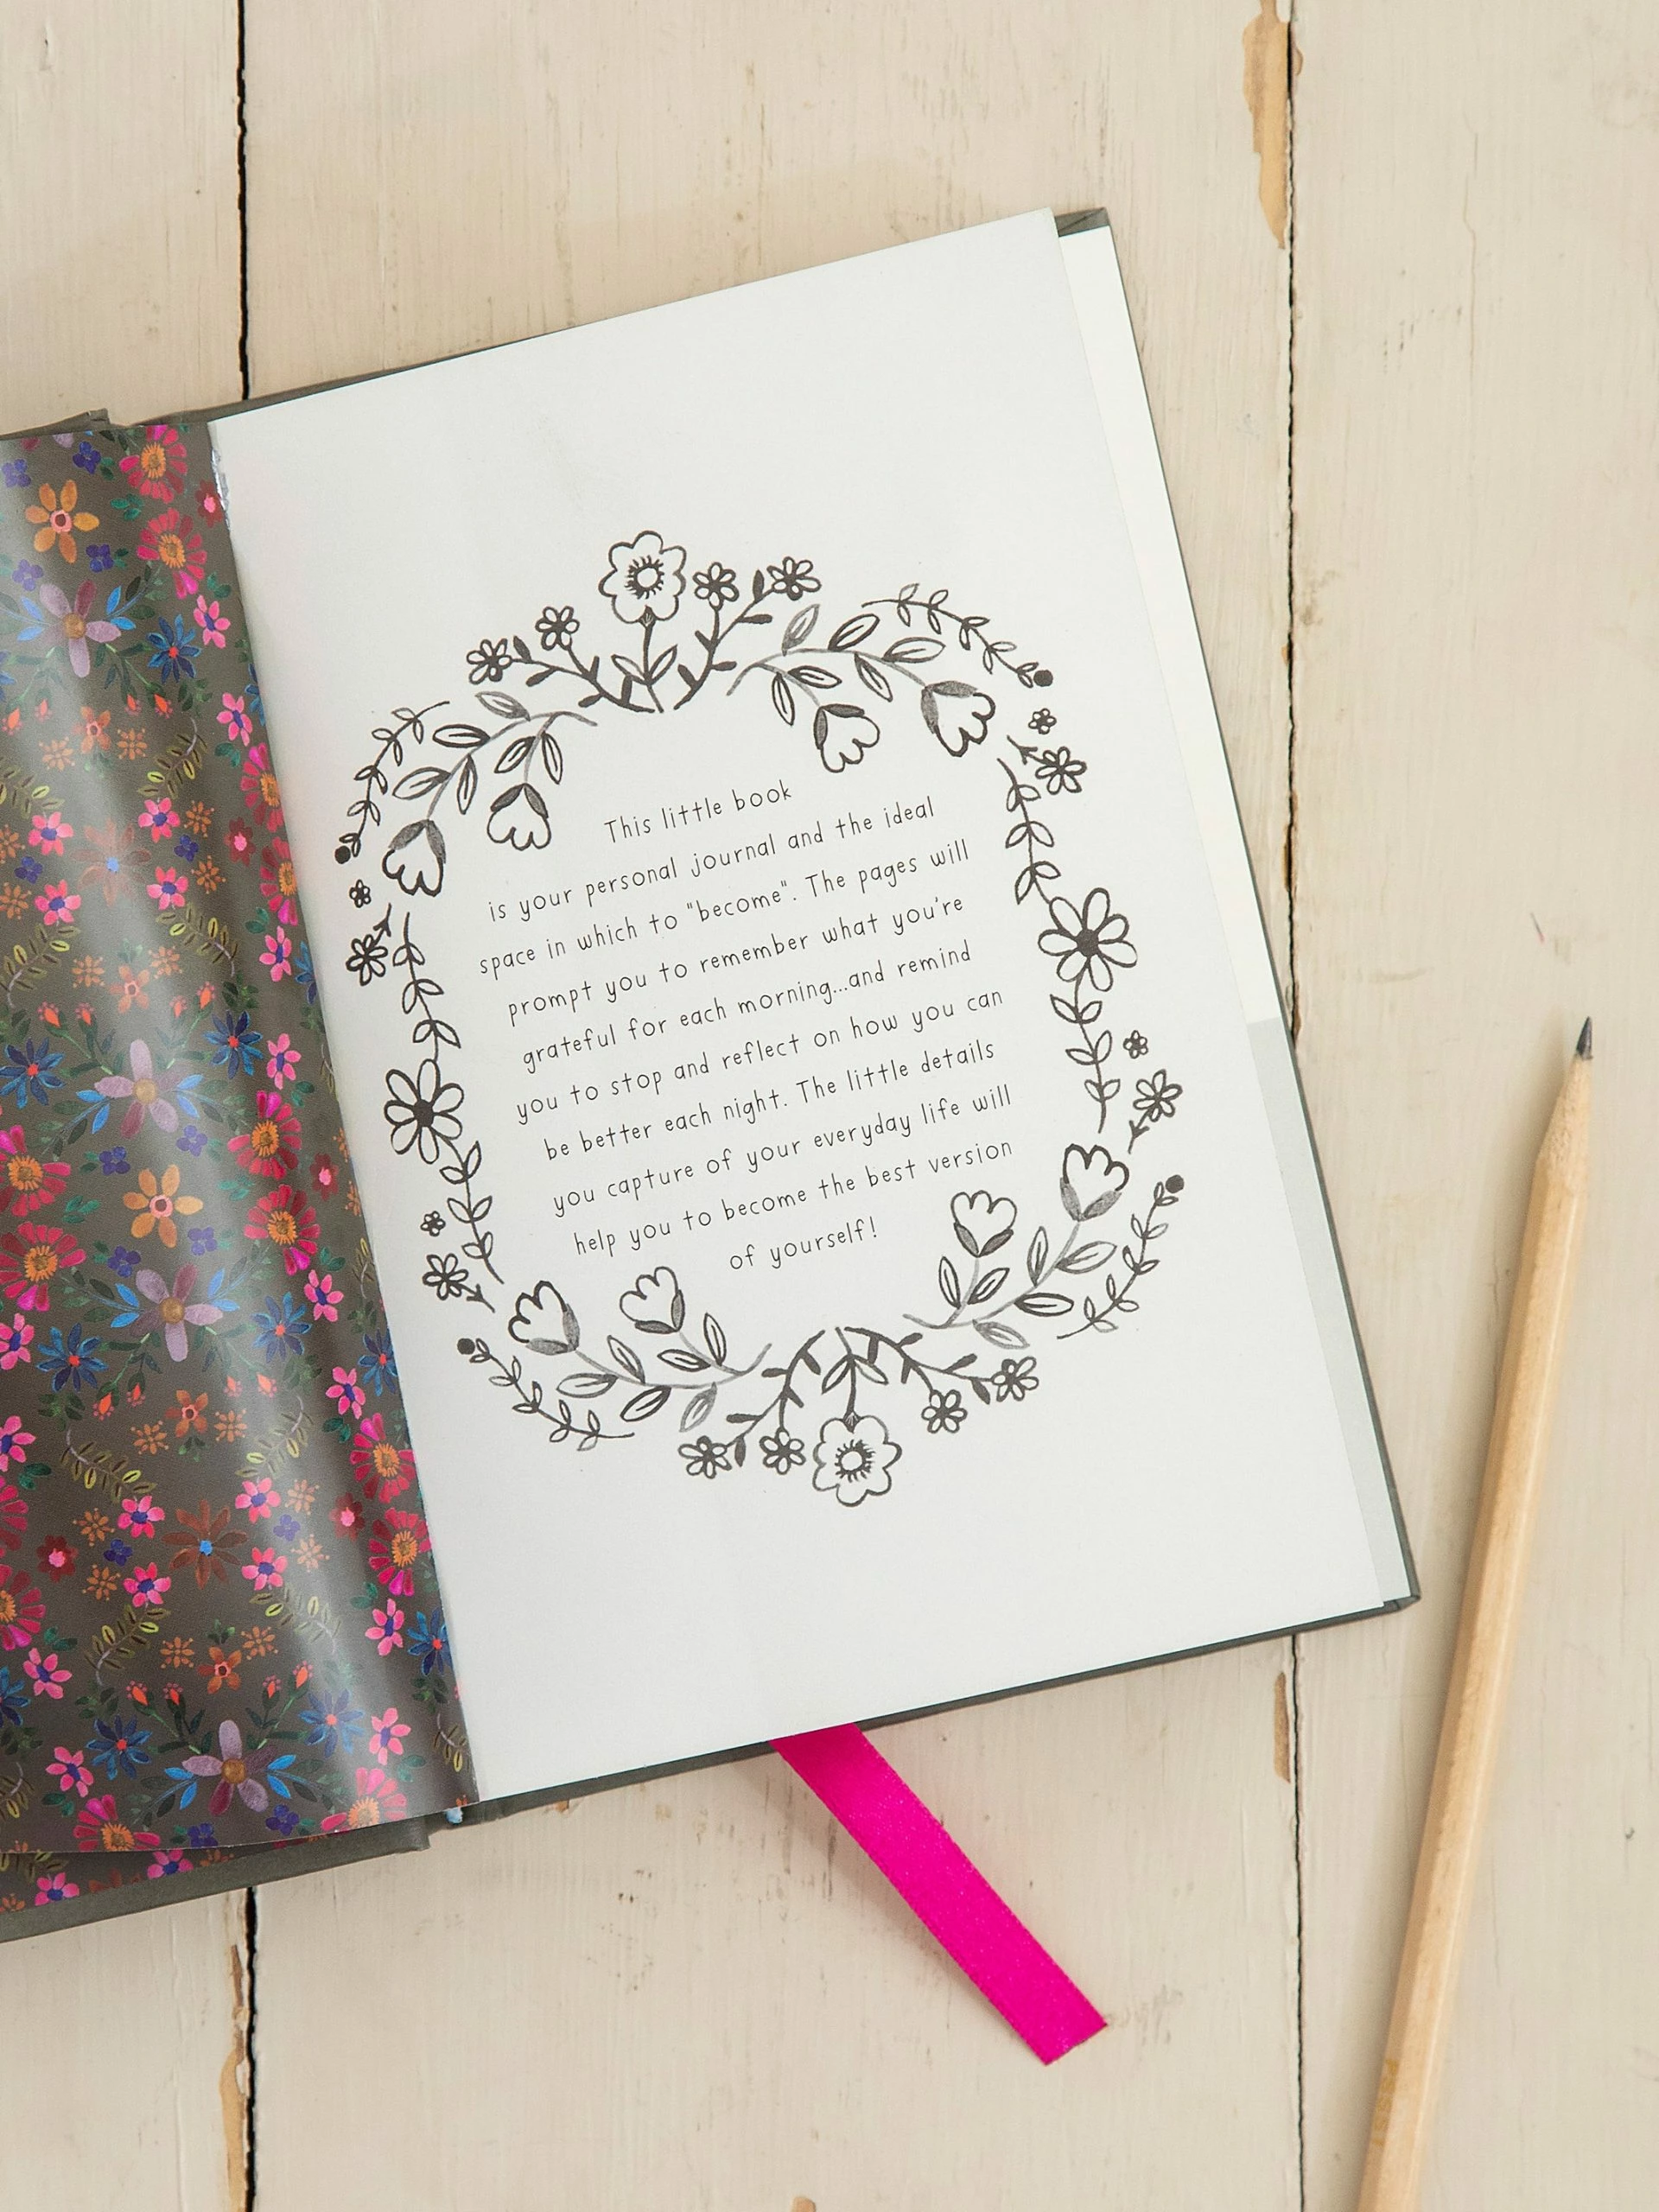 This little book
is your personal journal and the ideal
space in which to "become". The pages will
prompt you to remember what you're
grateful for each morning...and remind
you to stop and reflect on how you can
be better each night. The little details
you capture of your everyday life will
help you to become the best version
of yourself!